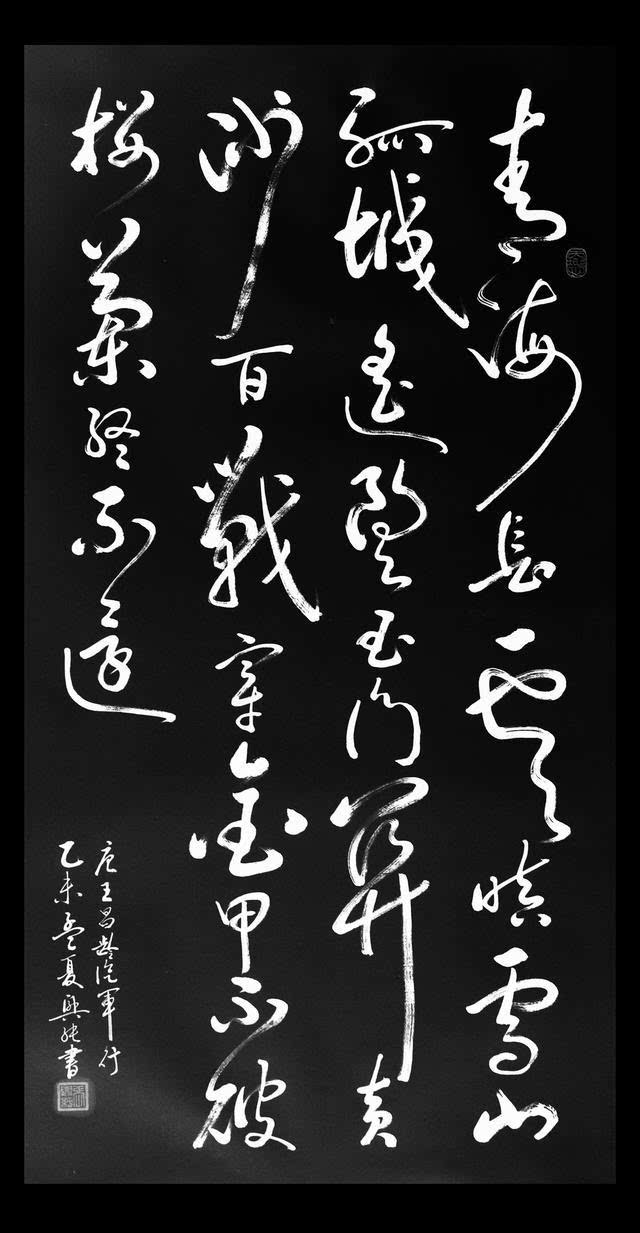 青海長雲暗雪山
孤城遙望玉門關黃
沙百戰穿金甲不破
樓蘭終不還
唐王昌齡從軍行
乙未孟夏興書